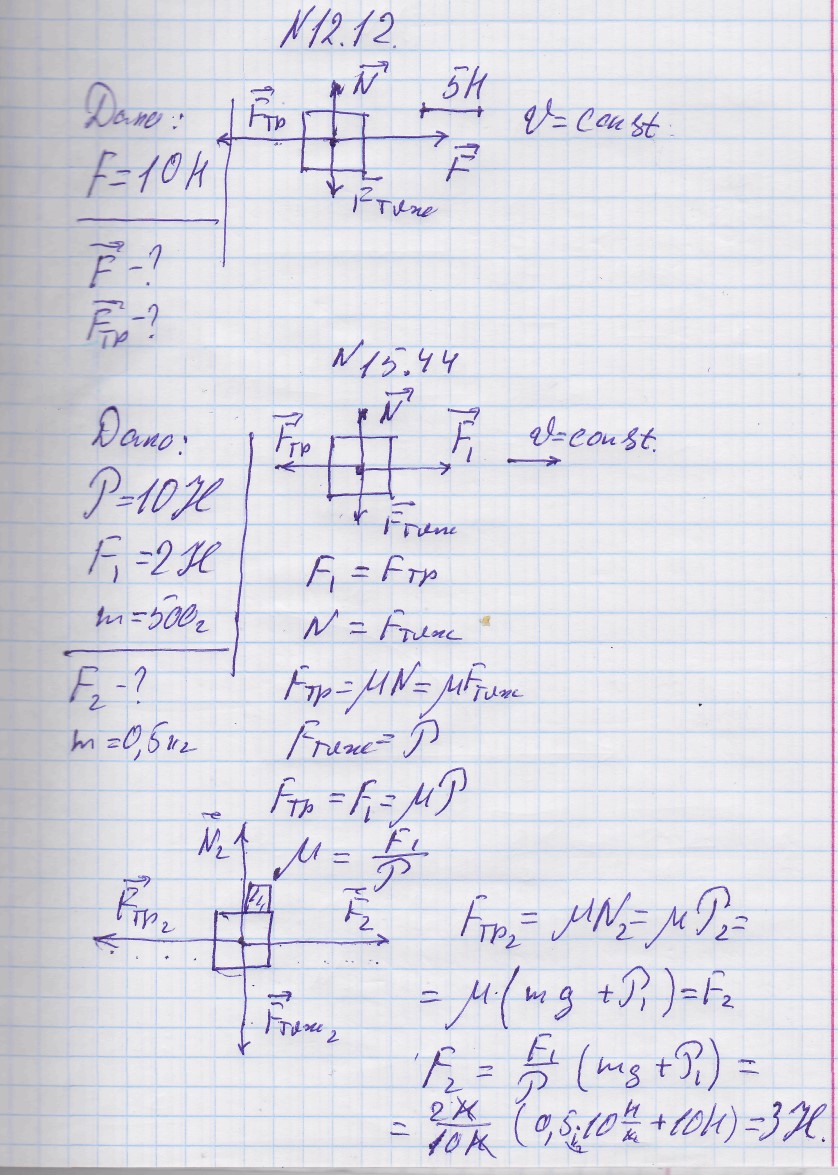 N12.12.
Дано:
F=10Н
F⃗-?
F⃗тр-?
N⃗
F⃗тр
F⃗
F⃗тяж
5Н
v=const.
N15.44
Дано:
P=10Н
F₁=2Н
m=500г
F₂-?
m=0,5кг
N⃗
F⃗тр
F⃗₁
F⃗тяж
v=const.
F₁ = Fтр
N = Fтяж
Fтр=μN=μFтяж
Fтяж=P
Fтр=F₁=μP
μ = F₁/P
N⃗₂
F⃗тр₂
F⃗₂
F⃗тяж₂
Fтр₂=μN₂=μP₂=
=μ(mg+P₁)=F₂
F₂ = F₁/P (mg+P₁) =
= 2Н/10Н (0,5кг·10Н/кг+10Н)=3Н.